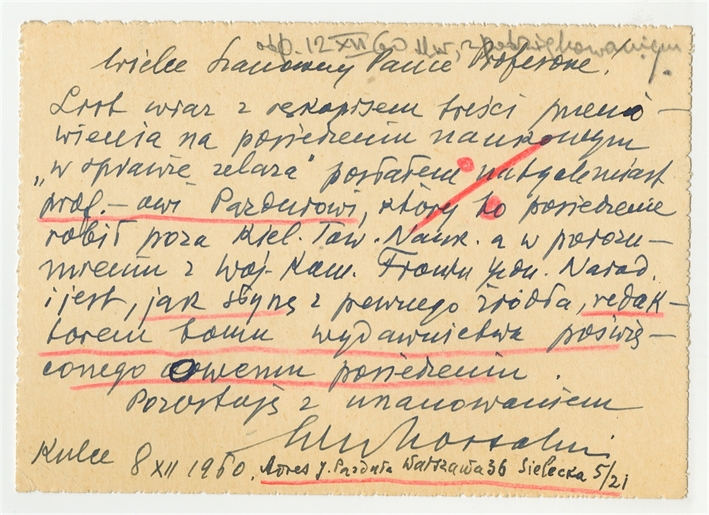 odp. 12 XII 60 Mw, z podziękowaniem.
Wielce Szanowny Panie Profesorze!
List wraz z rękopisem treści przemó-
wienia na posiedzeniu naukowym
„w sprawie żelaza" posłałem natychmiast
prof. - owi Pazdurowi, który to posiedzenie
robił poza Kiel. Tow. Nauk. a w porozu-
mieniu z Woj. Kom. Frontu Jedn. Narod.
i jest, jak słyszę z pewnego źródła, redak-
torem tomu wydawnictwa poświę-
conego owemu posiedzeniu.
Pozostaję z uszanowaniem
Kielce 8 XII 1960. Adres J. Pazdura Warszawa 36 Sielecka 5/21